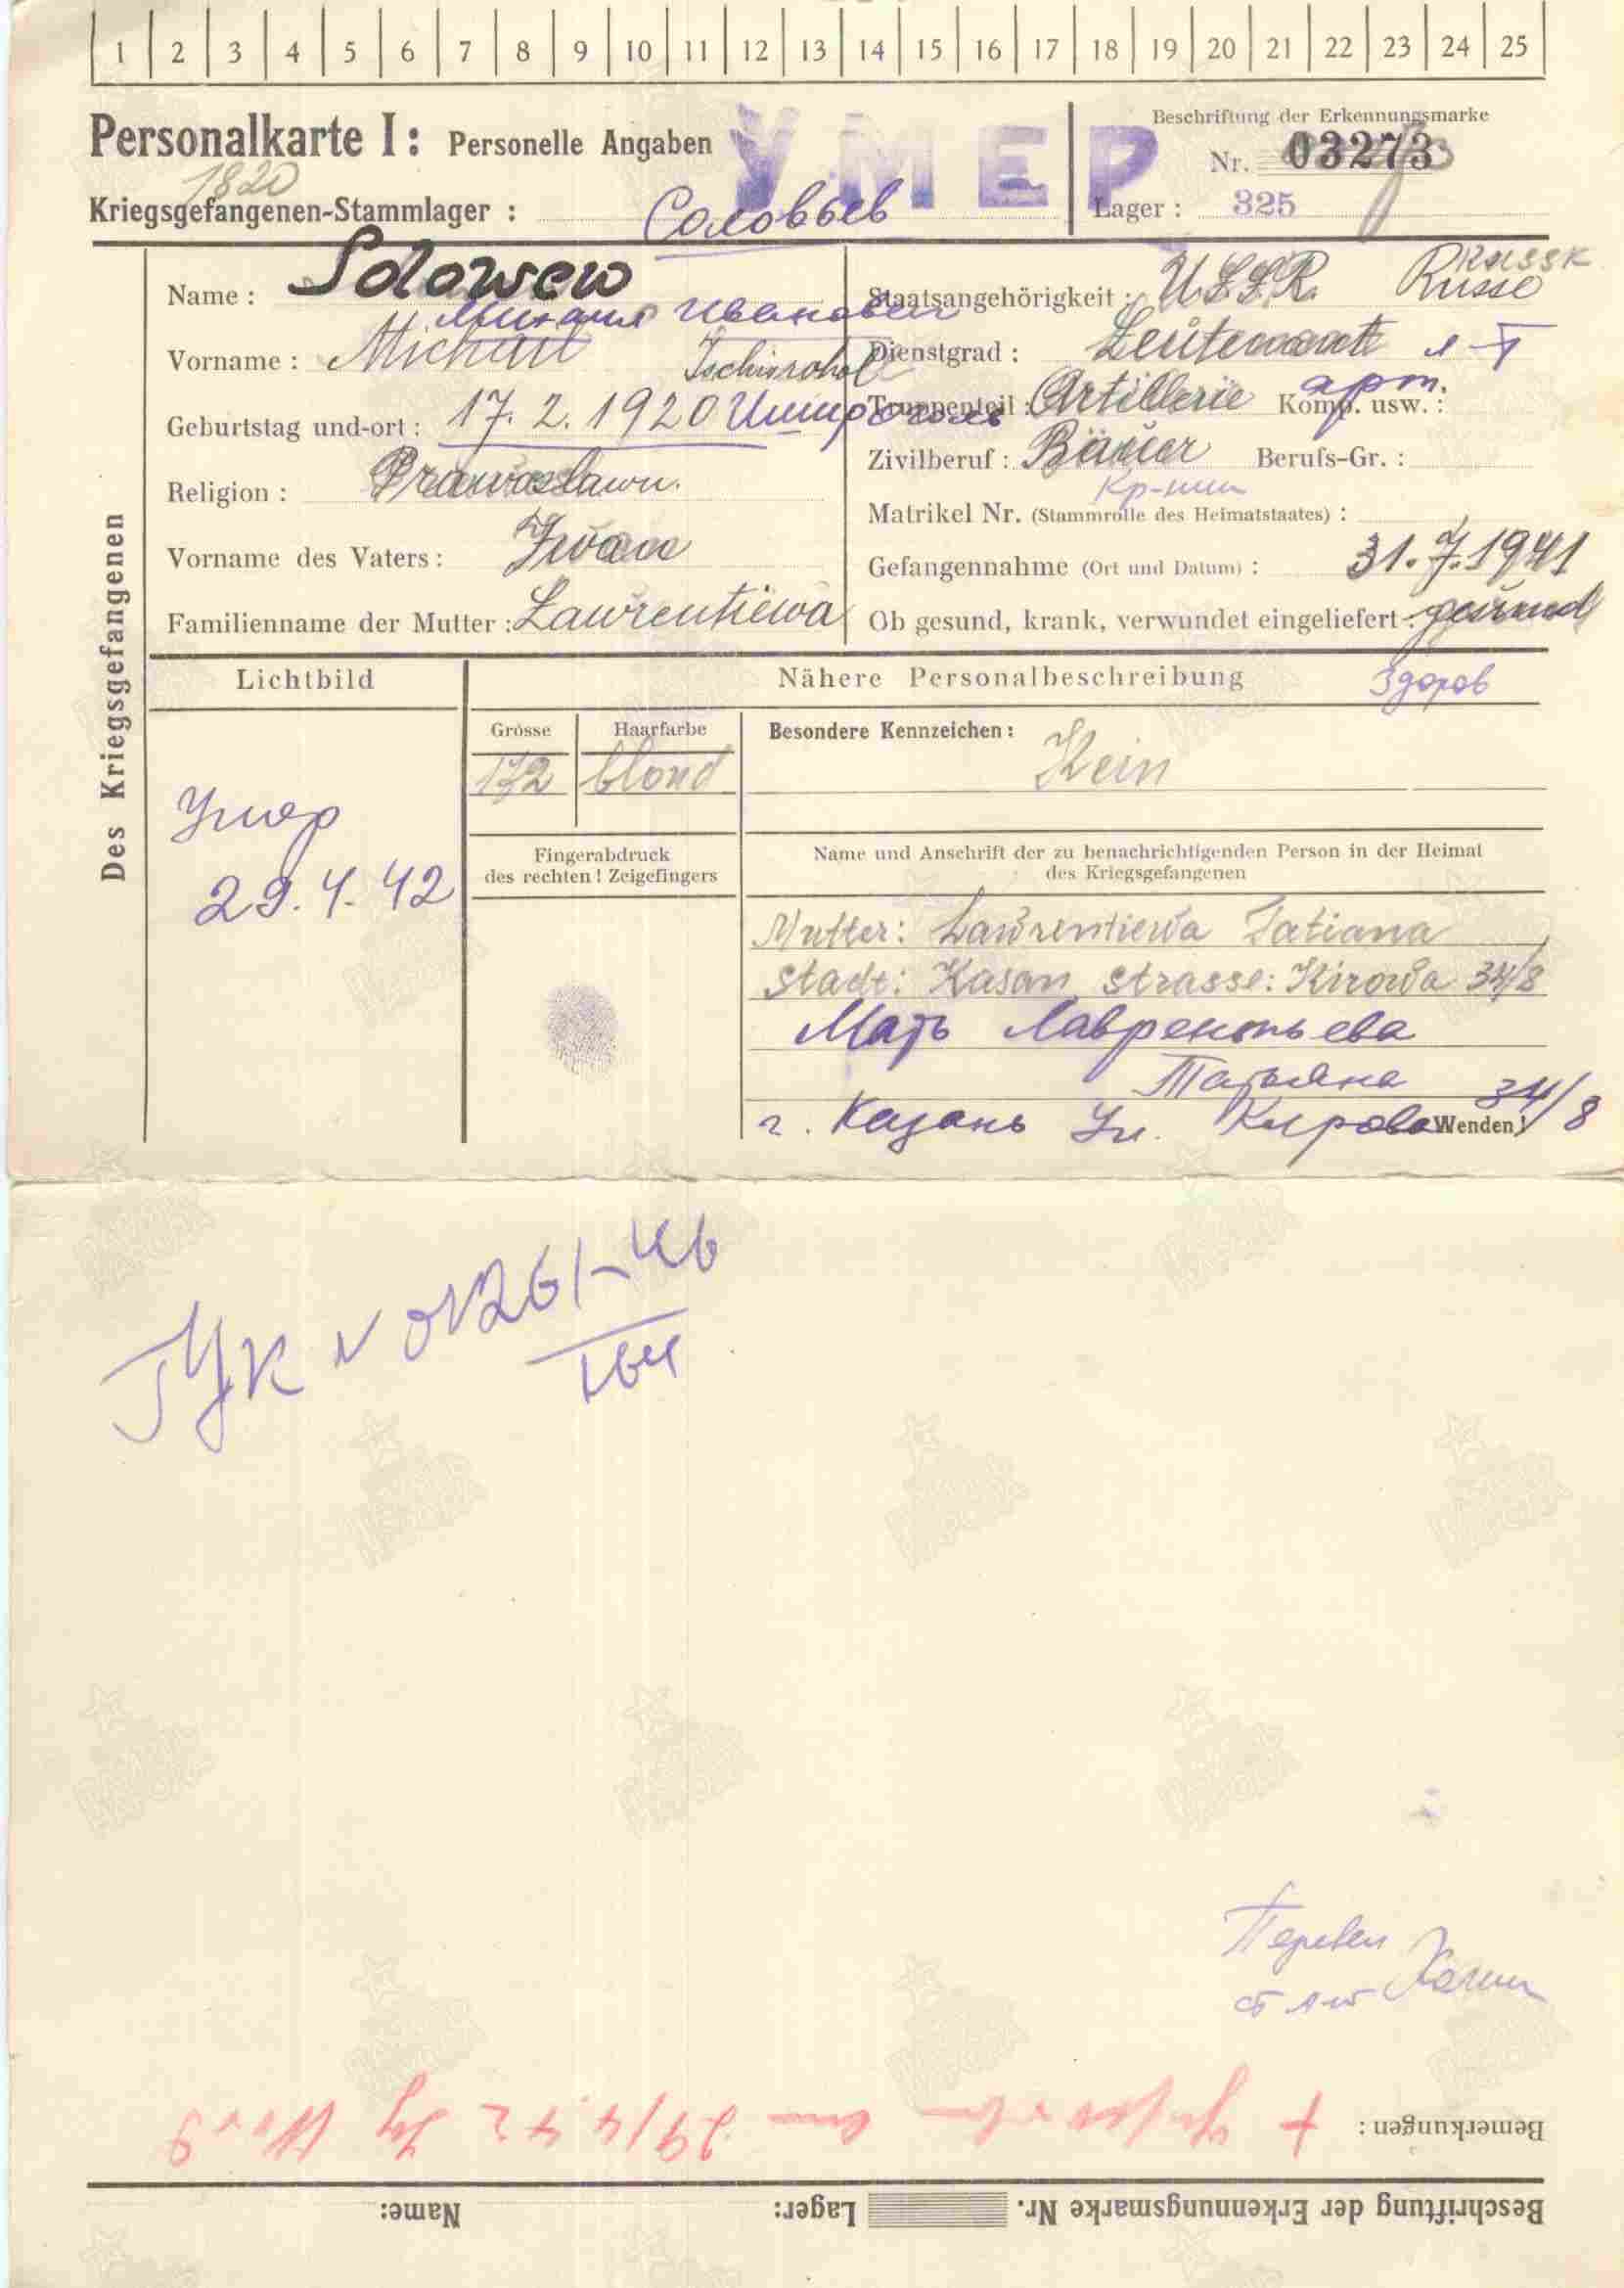 1 2 3 4 5 6 7 8 9 10 11 12 13 14 15 16 17 18 19 20 21 22 23 24 25
Personalkarte I: Personelle Angaben
УМЕР
Beschriftung der Erkennungsmarke
Nr. 03273
1820
Kriegsgefangenen-Stammlager :
Соловьев
Lager : 325
Des Kriegsgefangenen
Name : Solowew
Михаил Иванович
Vorname : Michail
Geburtstag und-ort : 17. 2. 1920
Religion : Prawoslawn.
Vorname des Vaters : Iwan
Familienname der Mutter : Lawrentiewa
Staatsangehörigkeit : U.S.S.R. Russe
Dienstgrad : Leutenant л-т
Truppenteil : Artillerie Komp. usw. :
арт.
Zivilberuf : Bauer Berufs-Gr. :
Кр-нин
Matrikel Nr. (Stammrolle des Heimatstaates) :
Gefangennahme (Ort und Datum) : 31.7.1941
Ob gesund, krank, verwundet eingeliefert : gesund
здоров
Lichtbild
Умер
29.4.42
Nähere Personalbeschreibung
Grösse
172
Haarfarbe
blond
Besondere Kennzeichen :
Kein
Fingerabdruck
des rechten ! Zeigefingers
Name und Anschrift der zu benachrichtigenden Person in der Heimat
des Kriegsgefangenen
Mutter: Lawrentiewa Tatiana
Stadt: Kasan Strasse: Kirowa 34/8
Мать Лаврентьева
Татьяна
г. Казань Ул. Кирова 34/8
Wenden !
ГУК
Перевел
Bemerkungen : + 29/4.42
Beschriftung der Erkennungsmarke Nr. Lager: Name: